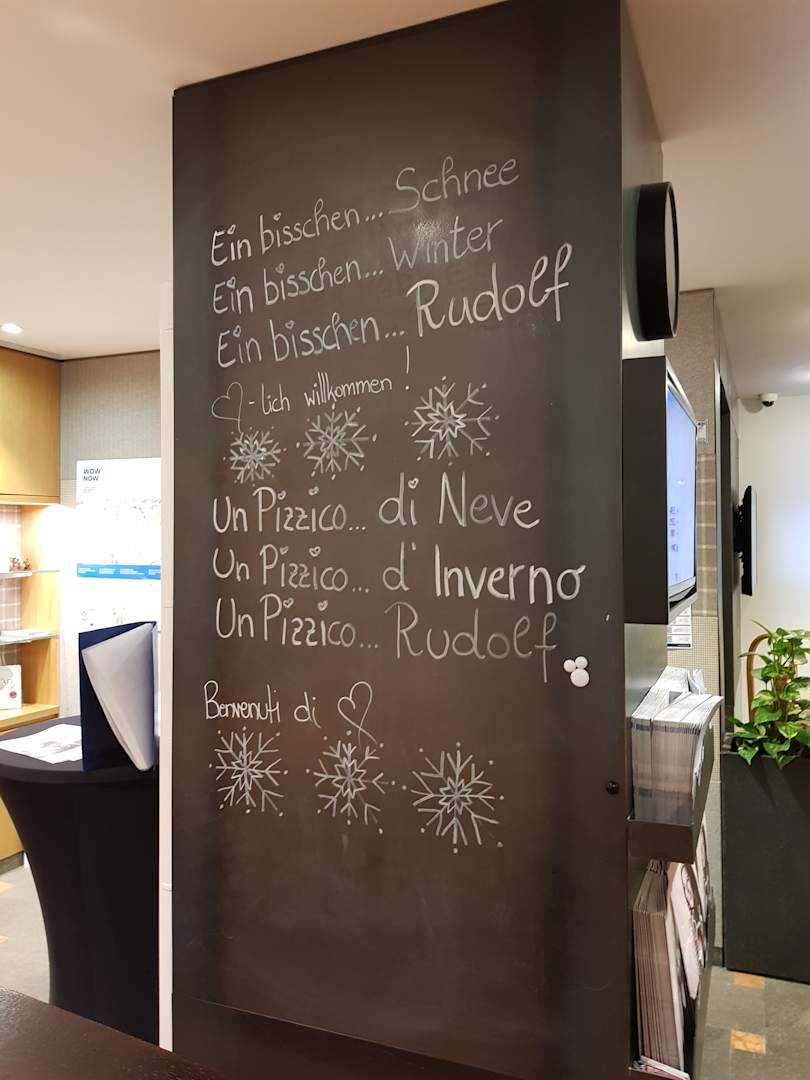 Ein bisschen... Schnee
Ein bisschen... Winter
Ein bisschen... Rudolf
♡-lich willkommen!
Un Pizzico... di Neve
Un Pizzico... d'Inverno
Un Pizzico... Rudolf
Benvenuti di ♡
WOW
NOW